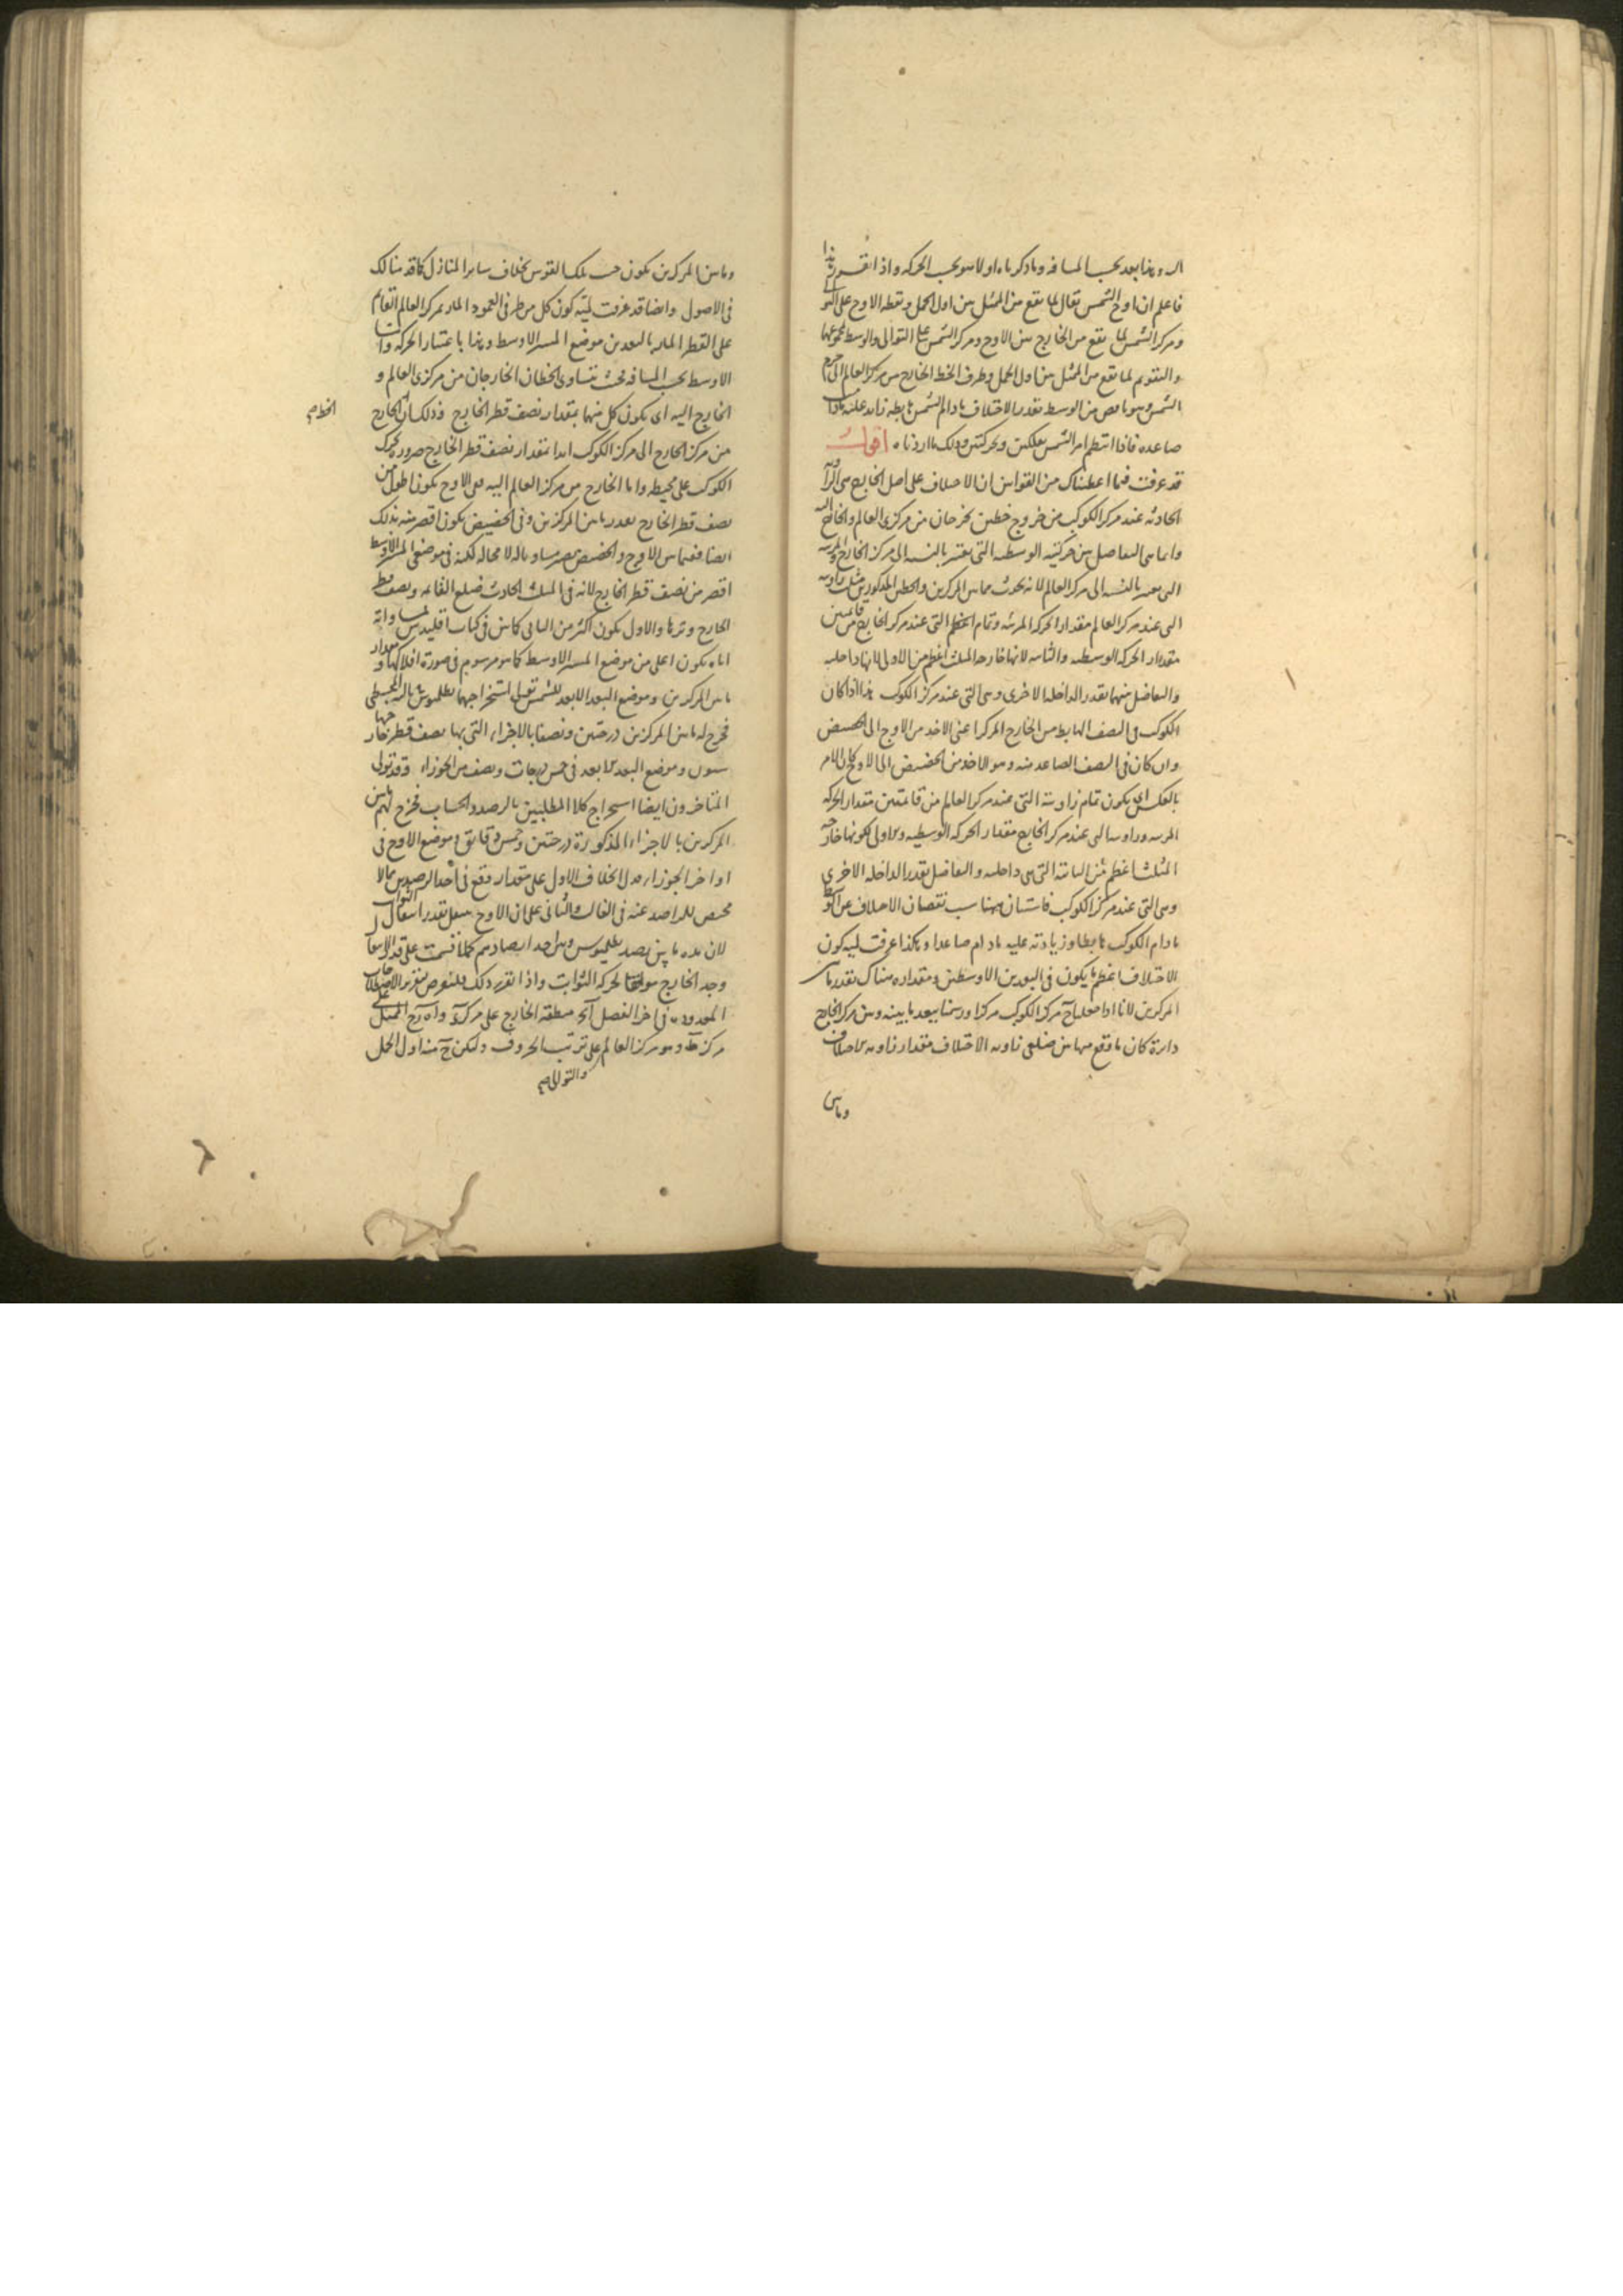 اليه وهذا بعد بحسب المسافة وما ذكرناه اولا هو بحسب الحركة واذا تقرر هذا
فاعلم ان اوج الشمس يقال لما يقع من الممثل بين اول الحمل ونقطة الاوج على التوالي
ومركز الشمس لما يقع من الخارج بين الاوج ومركز الشمس على التوالي والوسط مجموعهما
والتقويم لما يقع من الممثل بين اول الحمل وطرف الخط الخارج من مركز العالم الى جرم
الشمس وهو ناقص من الوسط بقدر الاختلاف ما دام الشمس هابطة زايد عليه ما دامت
صاعدة فاذا انتظم امر الشمس بفلكين وحركتين وذلك ما اردناه اقول
قد عرفت فيما اعطيناك من القوانين ان الاختلاف على اصل الخارج هي الزاوية
الحادثة عند مركز الكوكب من خروج خطين يخرجان من مركزي العالم والخارج اليه
وانما هي التفاضل بين حركتيه الوسطية التي تعتبر بالنسبة الى مركز الخارج والمرئية
التي تعتبر بالنسبة الى مركز العالم لانه يحدث مما بين المركزين والخطين المذكورين مثلث زاويته
التي عند مركز العالم مقدار الحركة المرئية وتمام العظمى التي عند مركز الخارج من قائمتين
مقدار الحركة الوسطية والثانية لانها خارجة المثلث اعظم من الاولى لانها داخلة
والتفاضل بينهما بقدر الداخلة الاخرى وهي التي عند مركز الكوكب هذا اذا كان
الكوكب في النصف الهابط من الخارج المركز اعني الاخذ من الاوج الى الحضيض
وان كان في النصف الصاعد منه وهو الاخذ من الحضيض الى الاوج كان الامر
بالعكس اي يكون تمام زاويته التي عند مركز العالم من قائمتين مقدار الحركة
المرئية وزاويته التي عند مركز الخارج مقدار الحركة الوسطية والاولى لكونها خارجة
المثلث اعظم من الثانية التي هي داخلة والتفاضل بقدر الداخلة الاخرى
وهي التي عند مركز الكوكب فاستبان بهذا سبب نقصان الاختلاف عن الوسط
ما دام الكوكب هابطا وزيادته عليه ما دام صاعدا وهكذا عرفت لمية كون
الاختلاف اعظم ما يكون في البعدين الاوسطين ومقداره هناك بقدر ما بين
المركزين لانا اذا جعلنا مركز الكوكب مركزا ورسمنا ببعد ما بينه وبين مركز الخارج
دايرة كان ما وقع منها بين ضلعي زاوية الاختلاف مقدار زاوية الاختلاف
وما بين
وما بين المركزين يكون جيب تلك القوس بخلاف ساير المنازل كما قد بينا لك
في الاصول وايضا قد عرفت لمية كون كل من طرفي العمود المار بمركز العالم القائم
على القطر المار بالبعدين موضع المسير الاوسط وهذا باعتبار الحركة واما
الاوسط بحسب المسافة فحيث يتساوى الخطان الخارجان من مركزي العالم و
الخارج اليه اي يكون كل منهما بمقدار نصف قطر الخارج وذلك لان الخارج
الخط صح
من مركز الخارج الى مركز الكوكب ابدا بمقدار نصف قطر الخارج ضرورة تحرك
الكوكب على محيطه واما الخارج من مركز العالم اليه ففي الاوج يكون اطول من
نصف قطر الخارج بقدر ما بين المركزين وفي الحضيض يكون اقصر منه بذلك
ايضا ففيما بين الاوج والحضيض يصير مساويا له لا محالة لكنه في موضعي المسير الاوسط
اقصر من نصف قطر الخارج لانه في المثلث الحادث ضلع القائمة ونصف قطر
الخارج وترها والاول يكون اكثر من الثاني كما بين في كتاب اقليدس لمساواته
اياه يكون اعلى من موضع المسير الاوسط كما هو مرسوم في صورة افلاكها ومقدار
ما بين المركزين وموضع البعد الابعد للشمس تولى استخراجهما بطلميوس ثالثة المجسطي
فخرج له ما بين المركزين درجتين ونصفا بالاجزاء التي بها نصف قطر خارجها
ستون وموضع البعد الابعد في خمس درجات ونصف من الجوزاء وقد تولى
المتاخرون ايضا استخراج كلا المطلبين بالرصد والحساب فخرج لهم ما بين
المركزين بالاجزاء المذكورة درجتين وخمس دقائق وموضع الاوج في
اواخر الجوزاء فدل الخلاف الاول على مقدار وقع في احد الرصدين مما لا
محيص للراصد عنه في الغالب والثاني على ان الاوج ينتقل بقدر انتقال الثوابت
لان مدة ما بين رصد بطلميوس وبين احد ارصادهم كلما قسمت على قدر الانتقال
وجد الخارج موافقا لحركة الثوابت واذا تقرر ذلك فلنعرض لتقرير الاصطلاحات
الموعودة في اخر الفصل منطقة الخارج على مركز الممثل على
مركز ط وهو مركز العالم على ترتيب الحروف وليكن ح مبدا اول الحمل
والتوالي صح